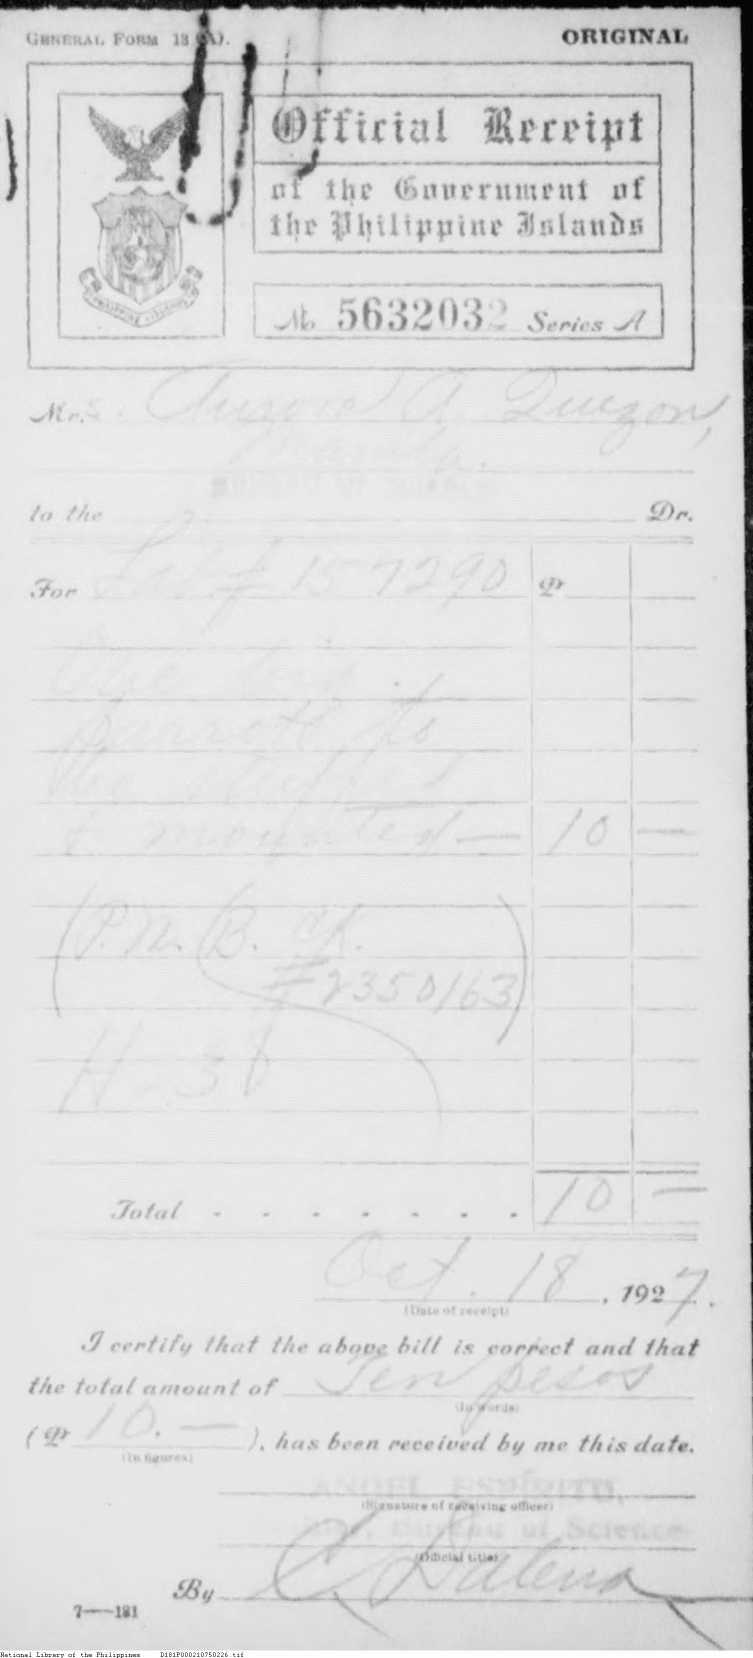 GENERAL FORM 13 (A).
ORIGINAL
Official Receipt
of the Government of
the Philippine Islands
No 5632032 Series A
Mrs. A. Quezon,
Manila.
BUREAU OF SCIENCE
to the Dr.
For Lab # 157290 ₱
One big
parrott to
be stuffed
& mounted — 10 —
(P.N.B. ck.
#2350163)
H-38
Total . . . . . . . 10 —
Oct. 18, 1927.
(Date of receipt)
I certify that the above bill is correct and that
the total amount of Ten pesos
(In words)
(₱ 10. — ), has been received by me this date.
(In figures)
ANGEL ESPÍRITU,
(Signature of receiving officer)
Bureau of Science
(Official title)
By C. Dalena
7—181
National Library of the Philippines D181P000210750226.tif